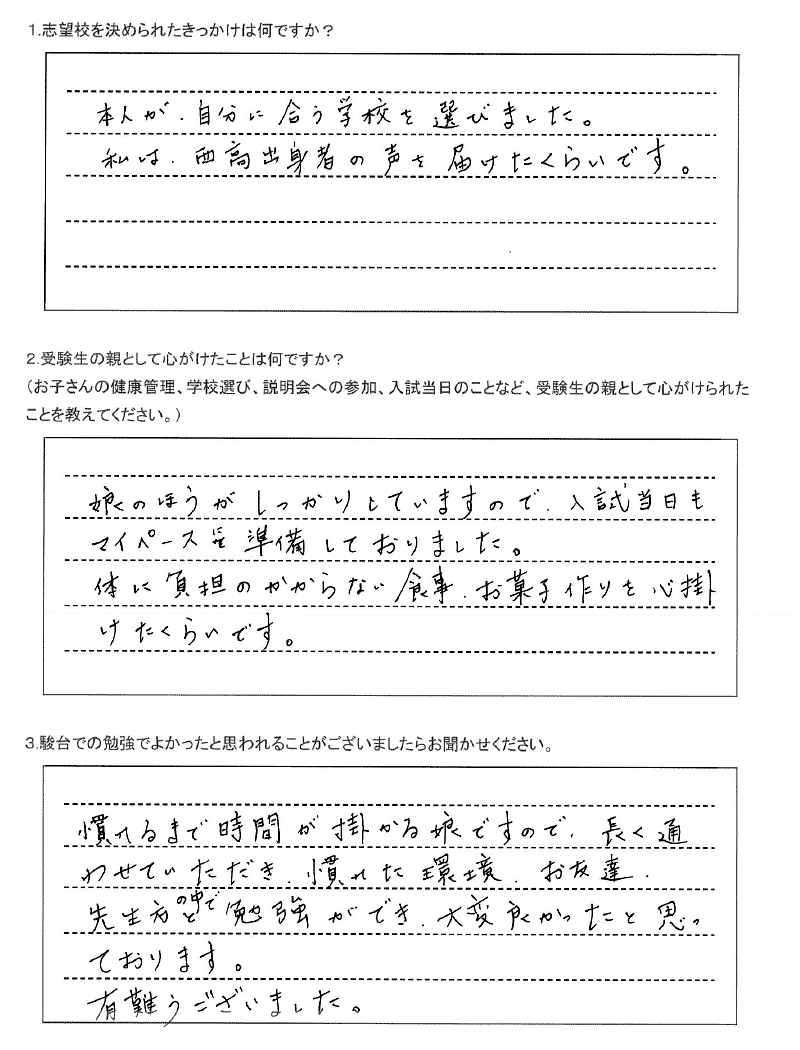 1.志望校を決められたきっかけは何ですか？
本人が、自分に合う学校を選びました。
私は、西高出身者の声を届けたくらいです。
2.受験生の親として心がけたことは何ですか？
（お子さんの健康管理、学校選び、説明会への参加、入試当日のことなど、受験生の親として心がけられた
ことを教えてください。）
娘のほうがしっかりしていますので、入試当日も
マイペースに準備しておりました。
体に負担のかからない食事、お菓子作りを心掛
けたくらいです。
3.駿台での勉強でよかったと思われることがございましたらお聞かせください。
慣れるまで時間が掛かる娘ですので、長く通
わせていただき、慣れた環境、お友達、
先生方の中で勉強ができ、大変良かったと思っ
ております。
有難うございました。